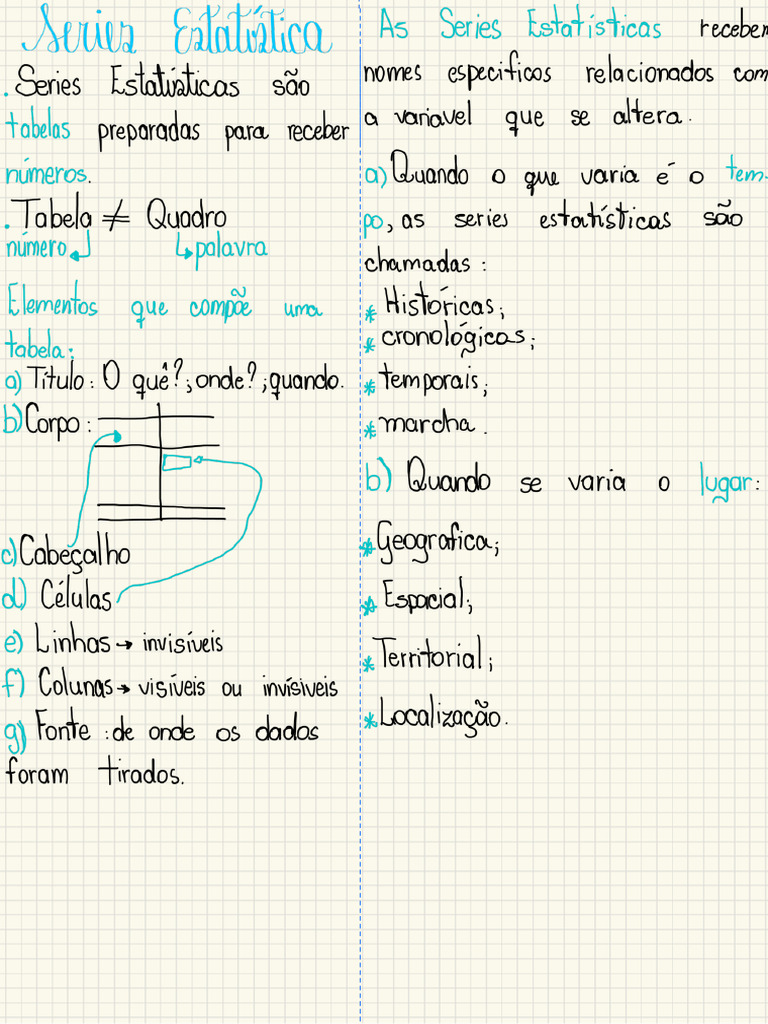 Series Estatística
. Series Estatísticas são
tabelas preparadas para receber
números.
. Tabela ≠ Quadro
número palavra
Elementos que compõe uma
tabela:
a) Título: O quê?; onde?; quando.
b) Corpo:
c) Cabeçalho
d) Células
e) Linhas → invisíveis
f) Colunas → visíveis ou invísiveis
g) Fonte : de onde os dados
foram tirados.
As Series Estatísticas recebem
nomes especificos relacionados com
a variavel que se altera.
a) Quando o que varia é o tem-
po, as series estatísticas são
chamadas:
* Históricas;
* cronológicas;
* temporais;
* marcha.
b) Quando se varia o lugar:
* Geografica;
* Espacial;
* Territorial;
* Localização.